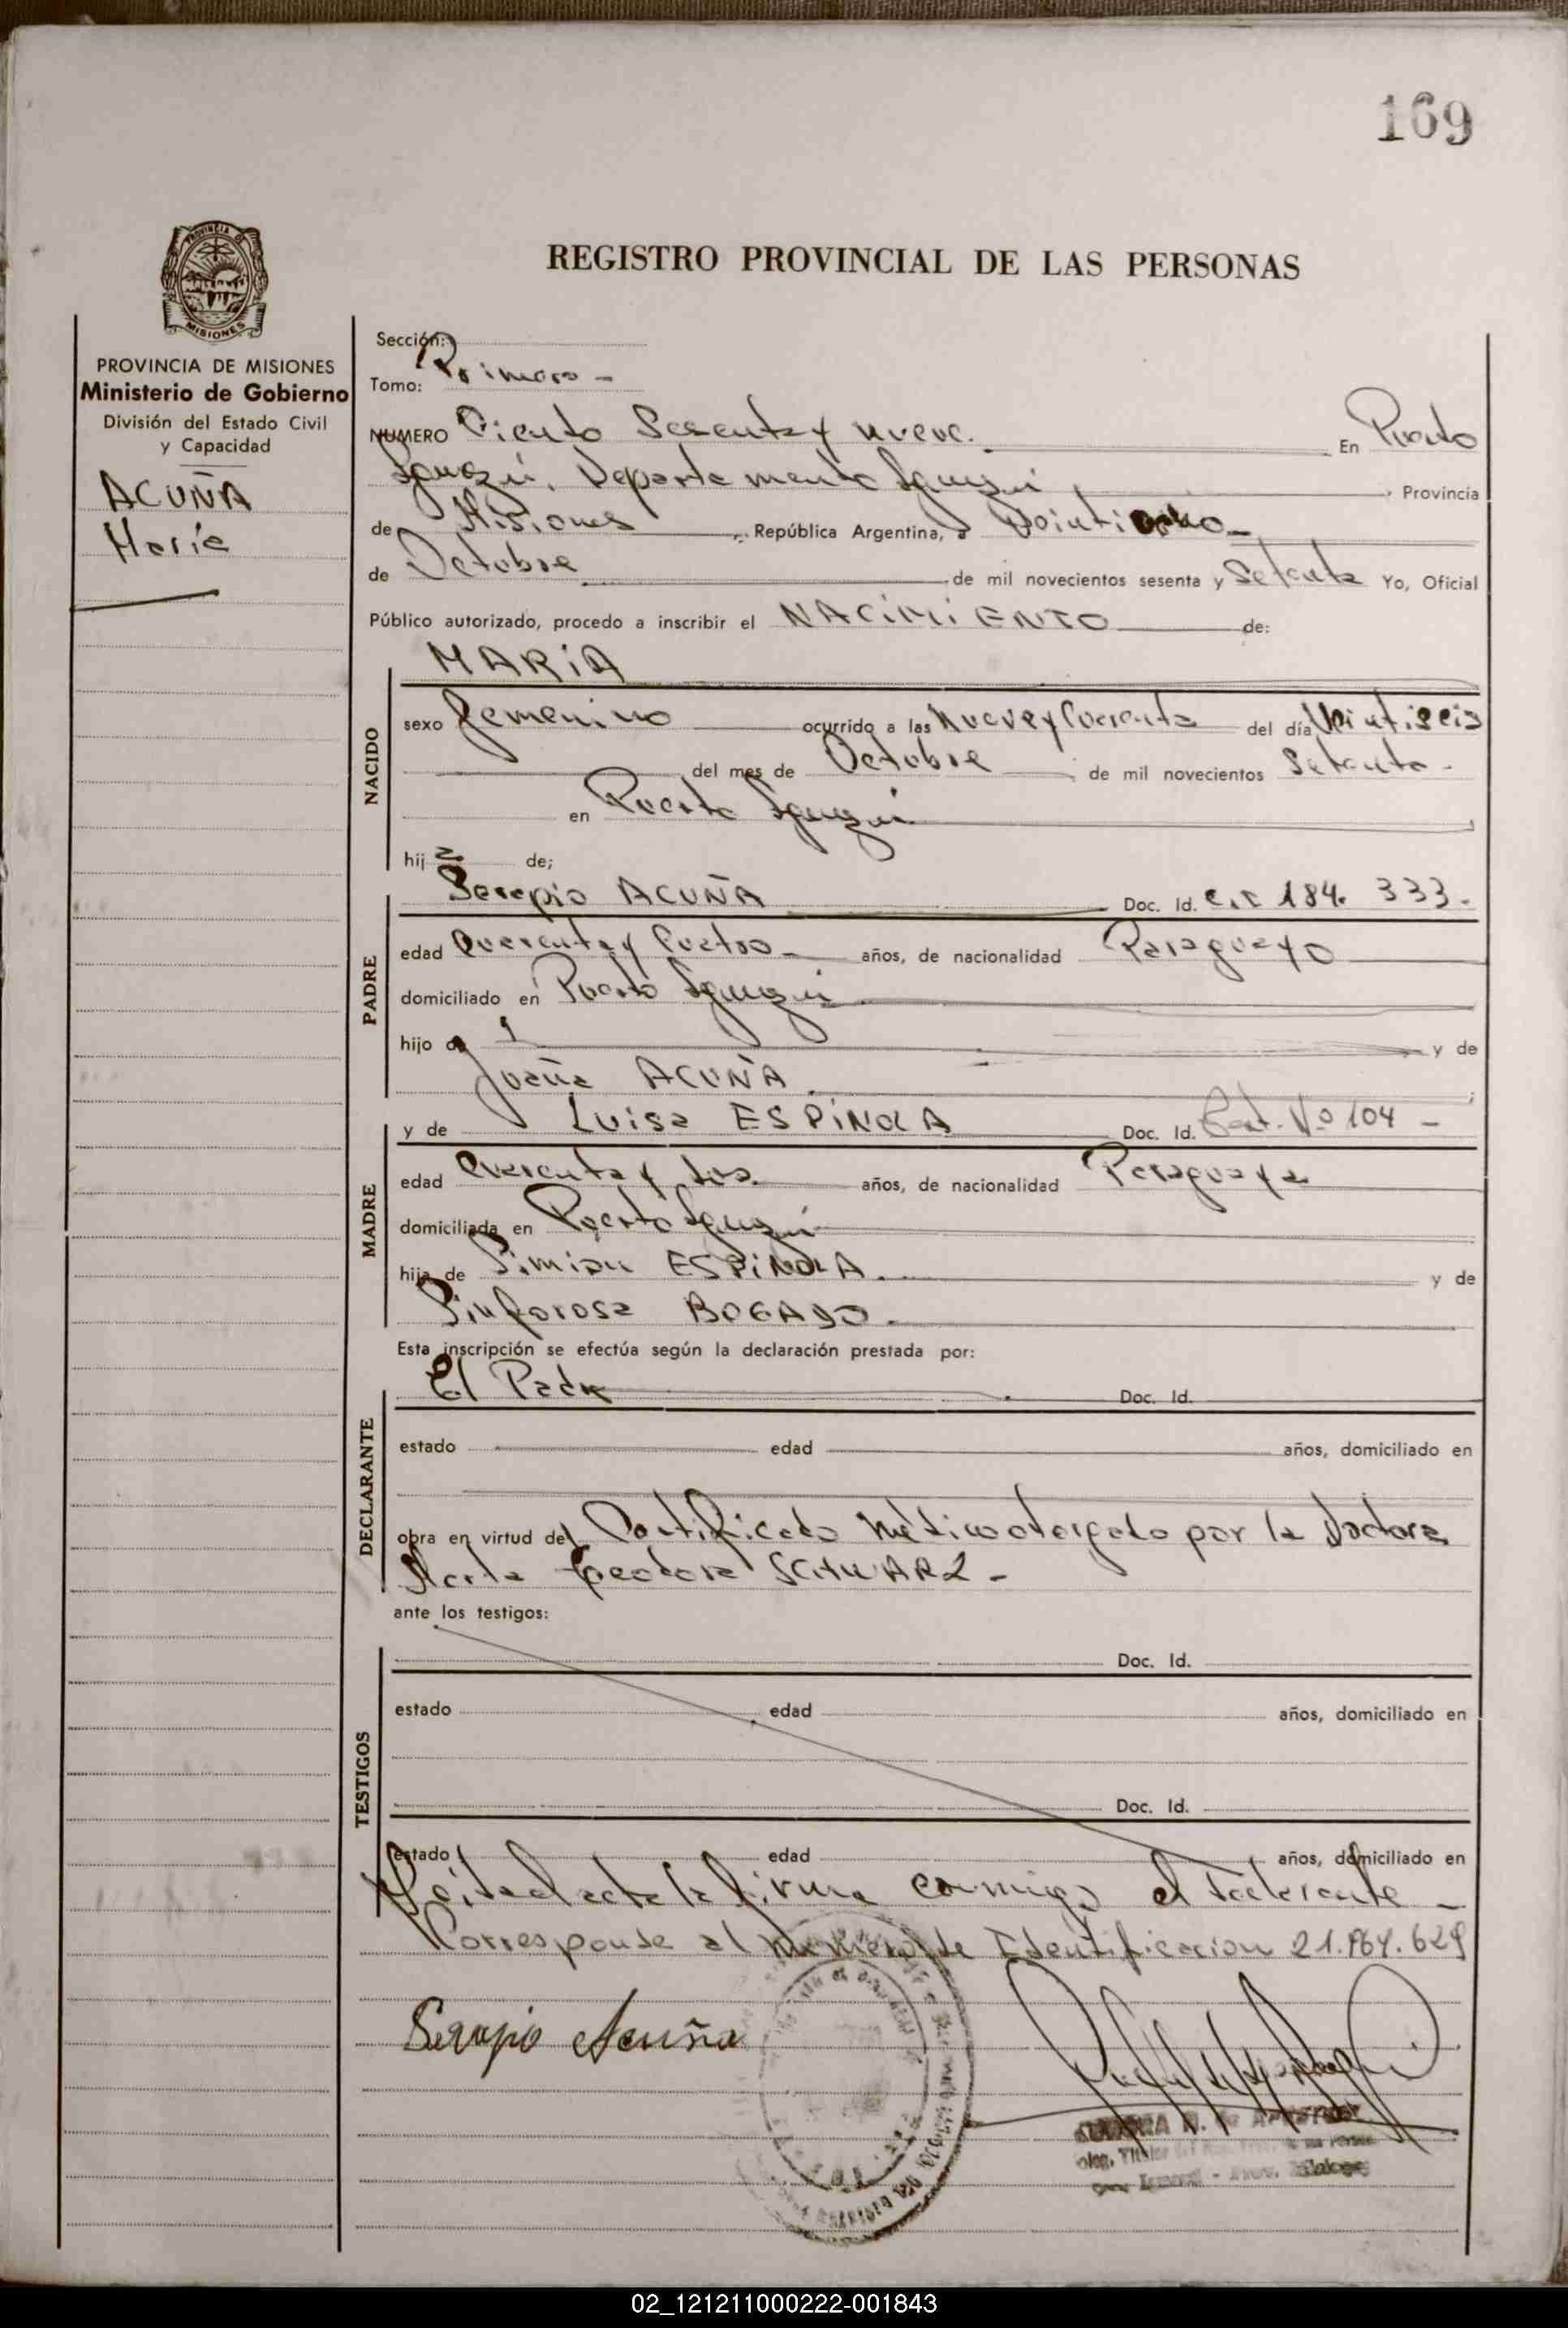 169
REGISTRO PROVINCIAL DE LAS PERSONAS
PROVINCIA DE MISIONES
Ministerio de Gobierno
División del Estado Civil
y Capacidad
ACUÑA
María
Sección:
Tomo: Primero -
NUMERO Ciento Sesenta y nueve. En Puerto
Iguazú, Departamento Iguazú, Provincia
de Misiones, República Argentina, a Veintiocho
de Octubre de mil novecientos sesenta y Setenta Yo, Oficial
Público autorizado, procedo a inscribir el NACIMIENTO de:
MARIA
NACIDO
sexo femenino ocurrido a las nueve y Cuarenta del día Veintiseis
del mes de Octubre de mil novecientos Setenta -
en Puerto Iguazú
hija de;
PADRE
Serapio ACUÑA Doc. Id. C.I 184. 333.
edad Cuarenta y Cuatro años, de nacionalidad Paraguayo
domiciliado en Puerto Iguazú
hijo de y de
Juana ACUÑA
MADRE
y de Luisa ESPINOLA Doc. Id. Nº 104 -
edad Cuarenta y dos años, de nacionalidad Paraguaya
domiciliada en Puerto Iguazú
hija de Simian ESPINOLA. y de
Sinforosa BOGADO.
Esta inscripción se efectúa según la declaración prestada por:
DECLARANTE
El Padre Doc. Id.
estado edad años, domiciliado en
obra en virtud del Certificado Médico otorgado por la Doctora
Marta Teodora SCHWARZ -
ante los testigos:
TESTIGOS
Doc. Id.
estado edad años, domiciliado en
Doc. Id.
estado edad años, domiciliado en
Leída el acta la firma conmigo el declarante -
Corresponde al numero de Identificacion 21. .629
Serapio Acuña
02_121211000222-001843